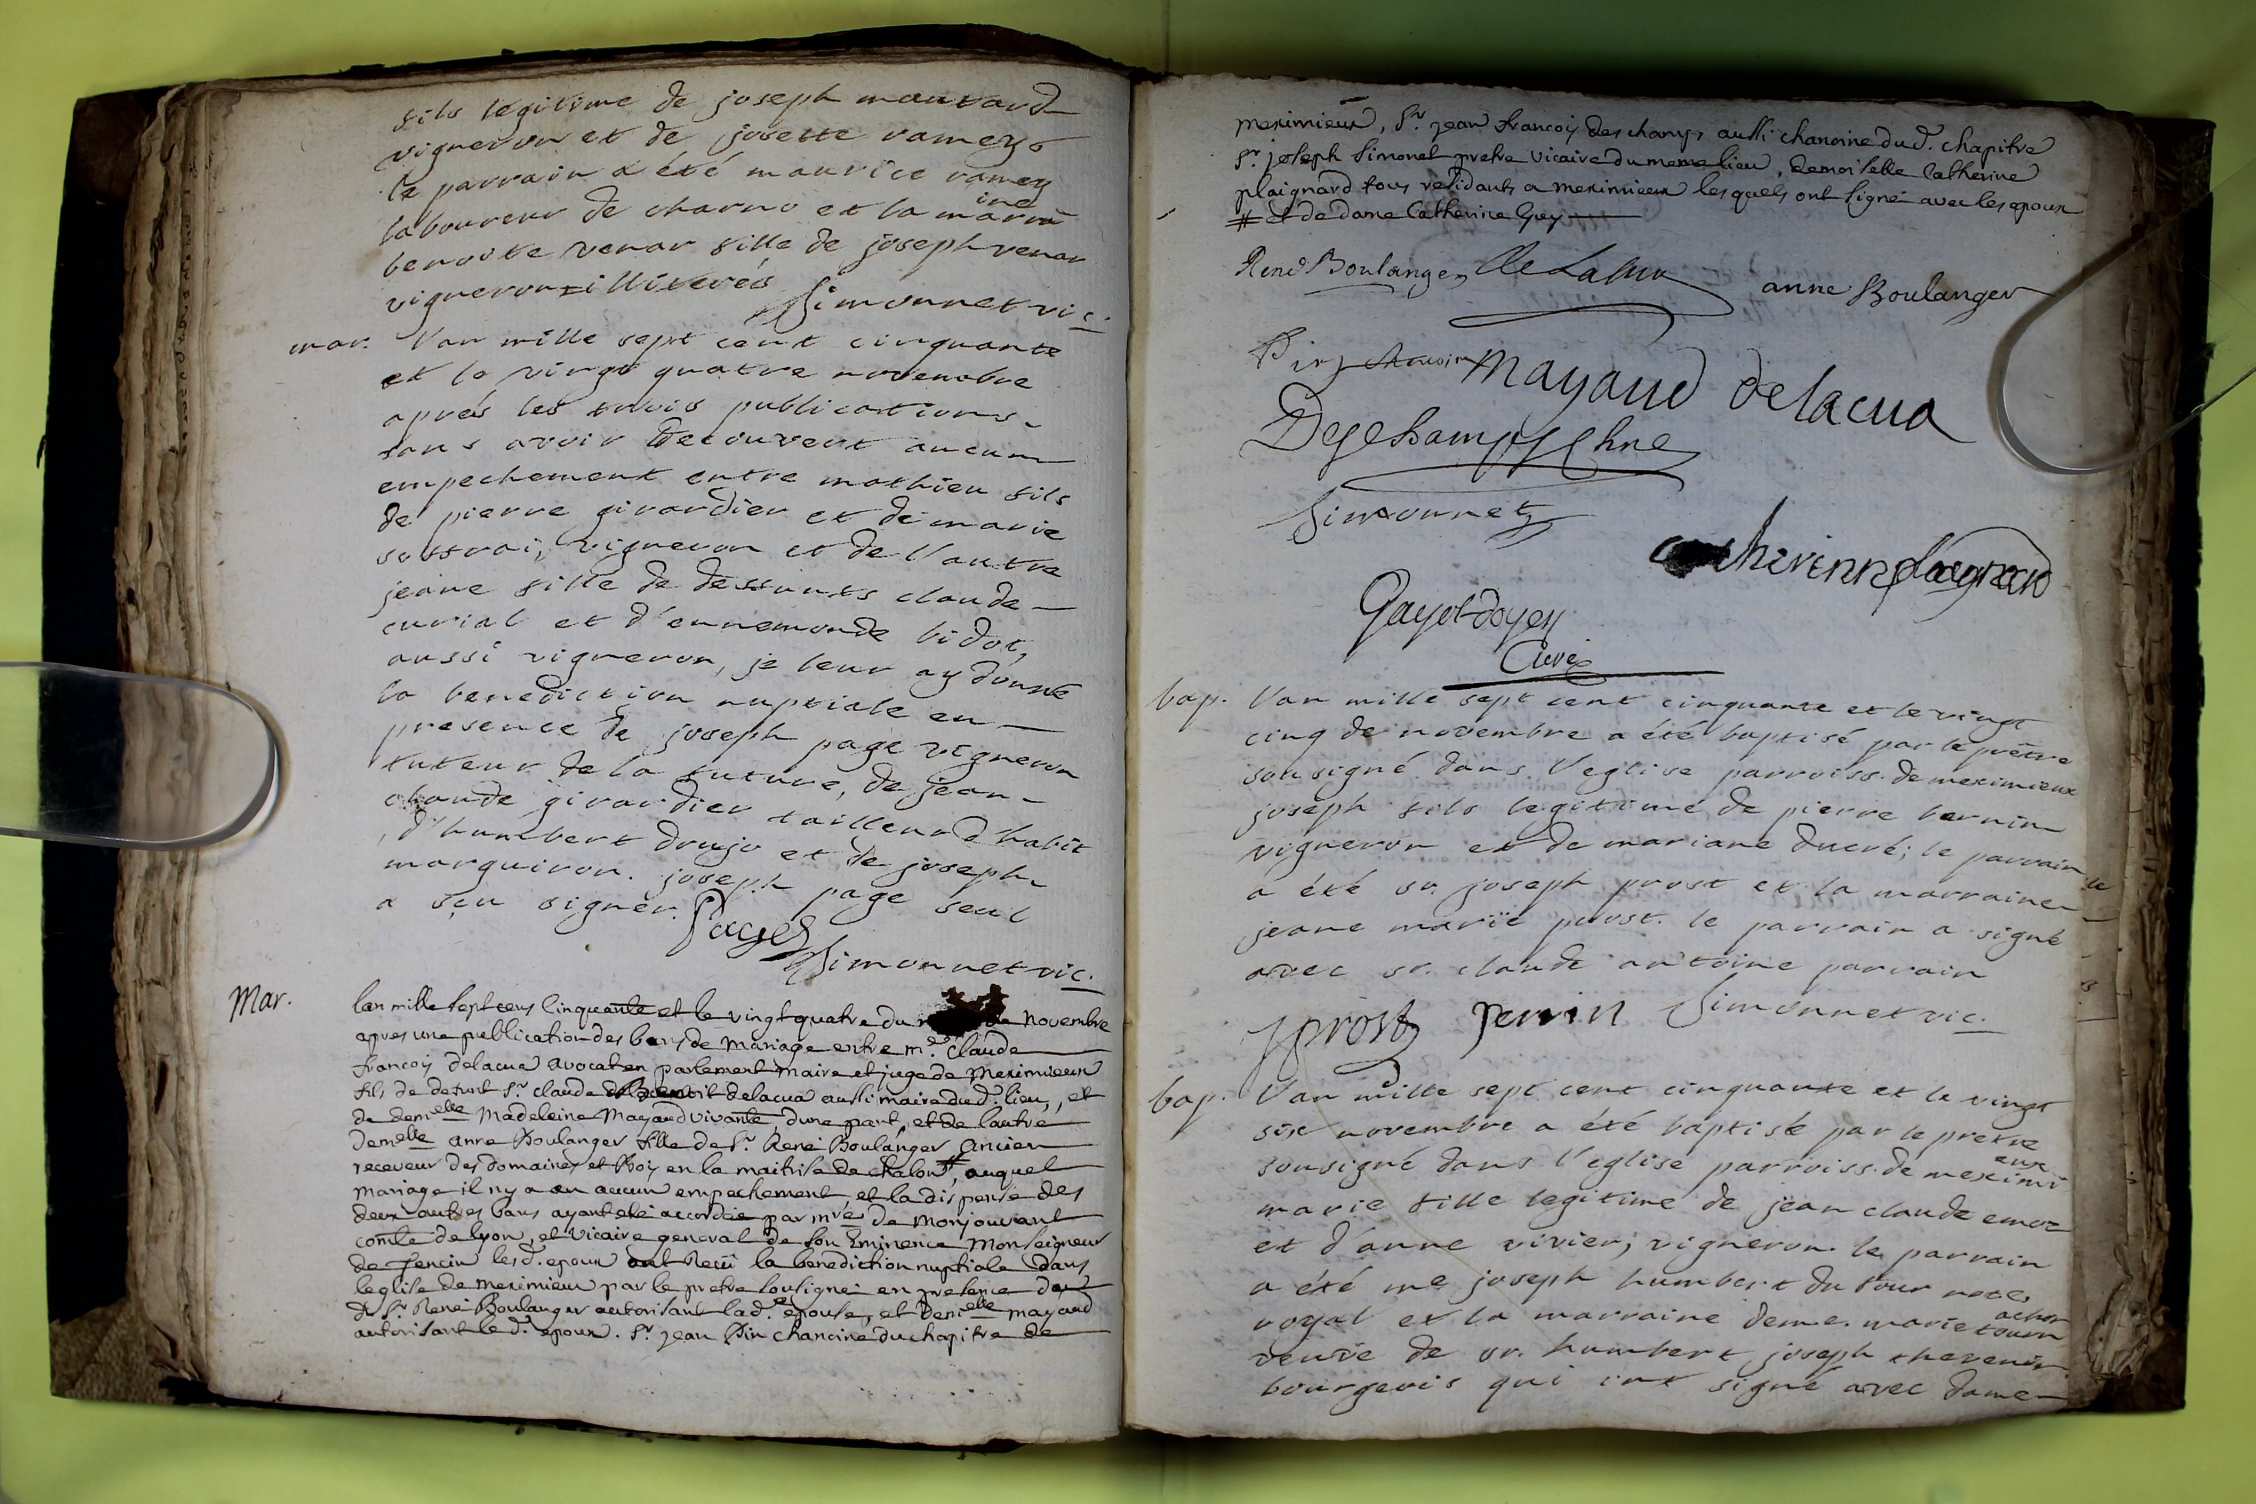 fils legitime de joseph mantard
vigneron et de josette ramey
le parrain a été maurice ramey
laboureur de charno et la marraine
benoite venar fille de joseph venar
vigneron illiterés
Simonnet vic.
mar. l'an mille sept cent cinquante
et le vingt quatre novembre
aprés les trois publications
sans avoir decouvert aucun
empechement entre mathieu fils
de pierre girardier et de marie
vigneron et de l'autre
jeane fille de deffunts claude
curial et d'ennemonde bidot,
aussi vigneron, je leur ay donné
la benediction nuptiale en
presence de joseph page vigneron
tuteur de la future, de jean
claude girardier tailleur d'habit
d'humbert drujo et de joseph
marguiron. joseph page seul
a sçu signer. Page
Simonnet vic.
Mar. lan mille sept cens Cinquante et le vingt quatre du de Novembre
apres une publication des bans de Mariage entre me. Claude
francois delacua avocat en parlement maire et juge de Meximieux
fils de defunt Sr. claude benoit delacua aussi maire dud. lieu, et
de demelle Madeleine Mayaud vivante, dune part, et de lautre
Demelle anne Boulanger fille de Sr. René Boulanger Ancien
receveur des domaines et Bois en la maitrise de chalon #, auquel
mariage il ny a eu aucun empechement, et la dispense des
deux autres bans ayant eté accordée par mre de Monjouvant
comte de lyon, et Vicaire general de son Eminence Monseigneur
de Tencin lesd. epoux ont Reçû la benediction nuptiale dans
leglise de meximieux par le pretre soussigné en presence de
Sr. René Boulanger autorisant lad. epouse, et Demelle mayaud
autorisant le d. epoux. Sr. jean Pin chanoine du chapitre de
meximieux, Sr. jean francois des champs aussi chanoine dud. chapitre
Sr. joseph Simonet pretre vicaire du meme lieu, demoiselle Catherine
plaignard tous residants a meximieux lesquels ont signé avec les epoux
# et de dame Catherine Guy
René Boulanger Delacua anne Boulanger
Pin chanoin Mayaud delacua
Deschamps Chne
Simonnet
catherinne plaegnard
Gayot doyen
Curé
bap. l'an mille sept cent cinquante et le vingt
cinq de novembre a été baptisé par le prêtre
sousigné dans l'eglise parroiss. de meximieux
joseph fils legitime de pierre bernin
vigneron et de mariane ducré; le parrain
a été sr. joseph prost et la marraine
jeane marie prost. le parrain a signé
avec sr. claude antoine parrain
jprost perrin Simonnet vic.
bap. l'an mille sept cent cinquante et le vingt
six novembre a été baptisé par le pretre
sousigné dans l'eglise parroiss. de meximieux
marie fille legitime de jean claude
et d'anne vivier; vigneron. le parrain
a été me joseph humbert du four notre
royal et la marraine deme. marie
veuve de sr. humbert joseph thevenin
bourgeois qui ont signé avec dame